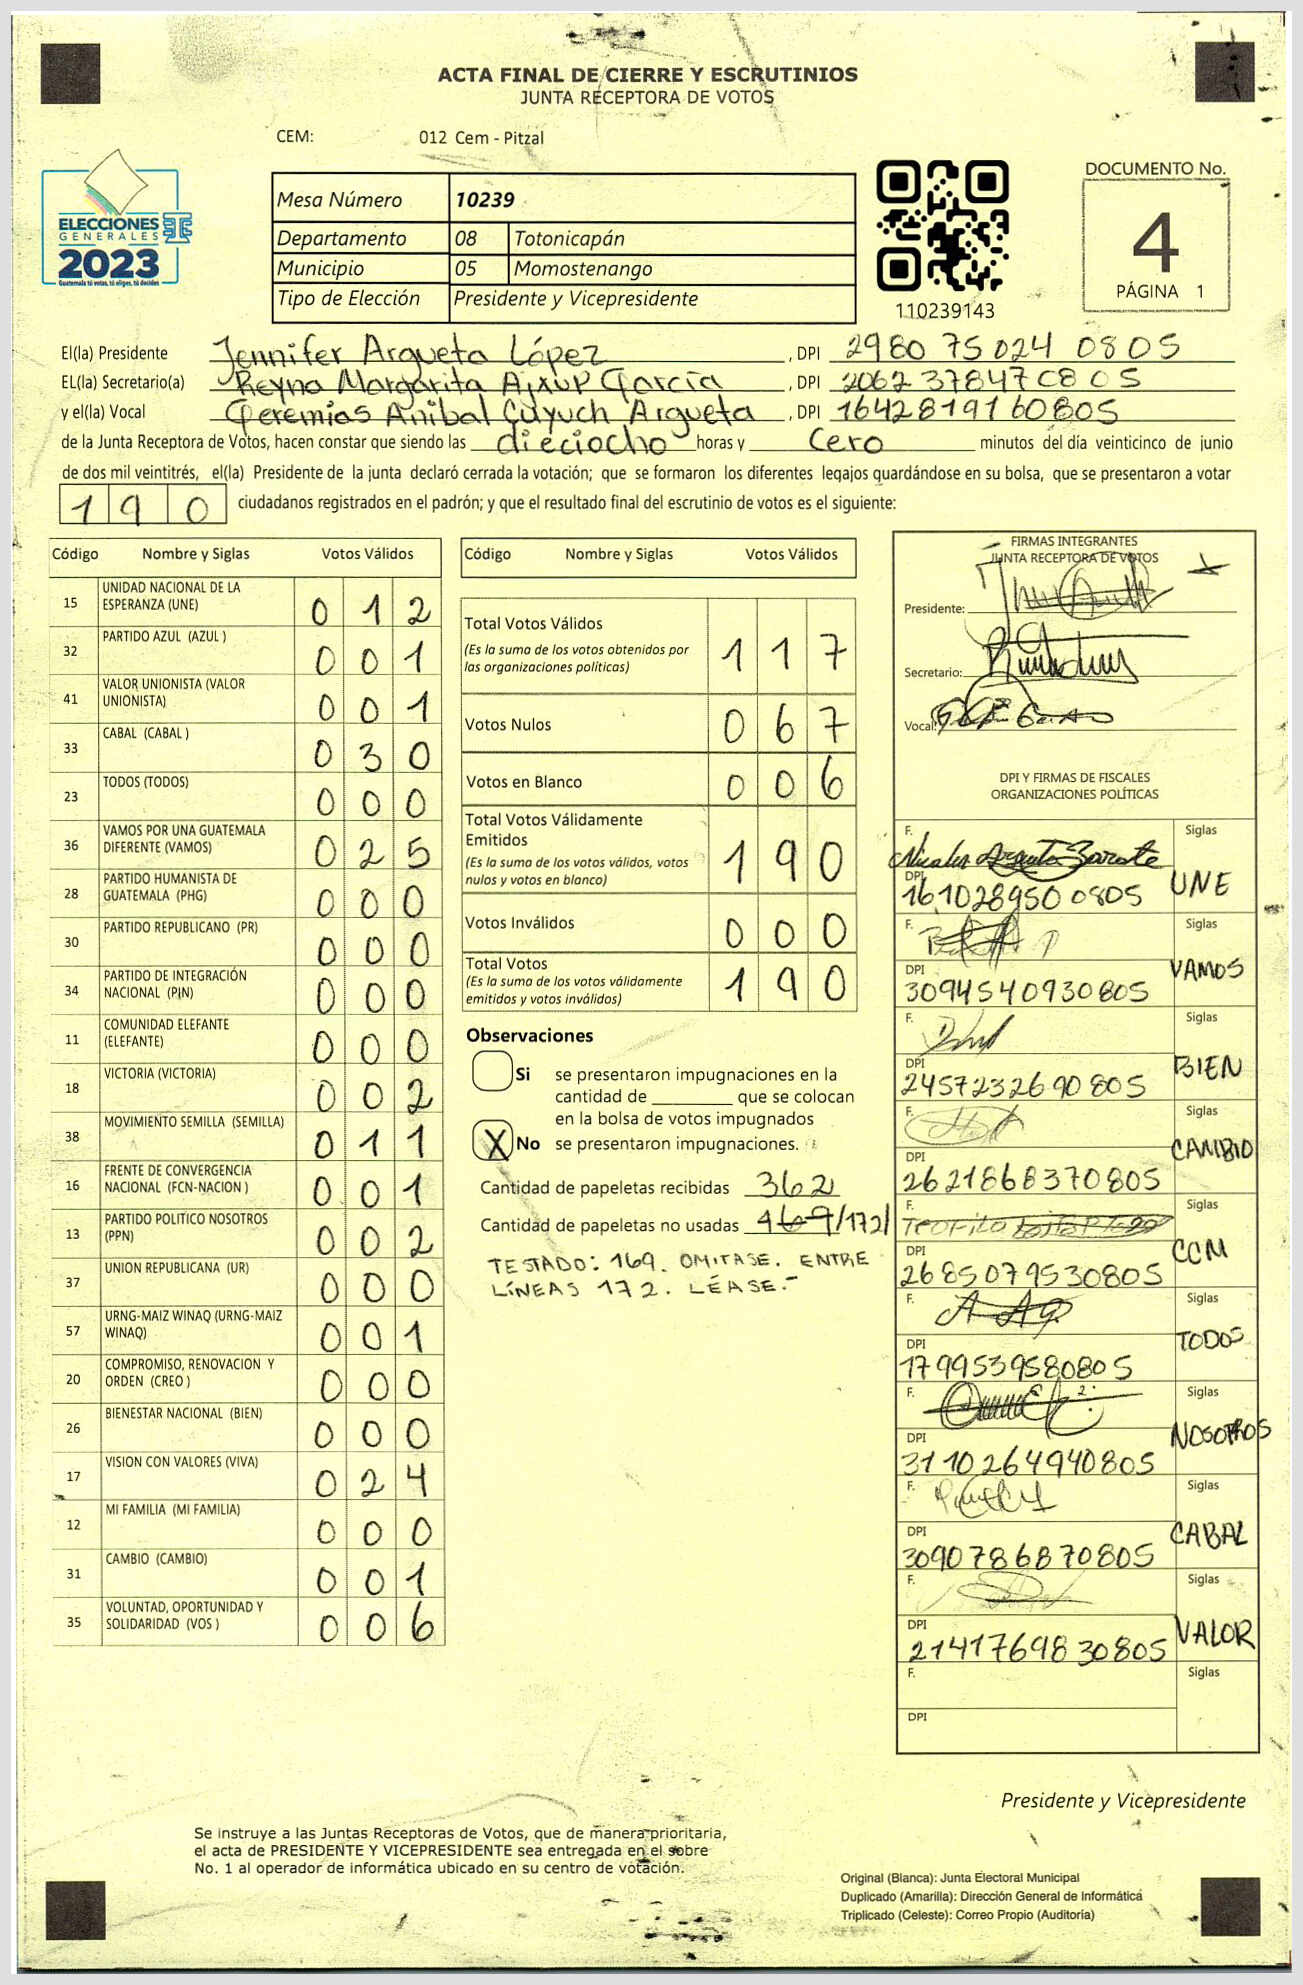 ACTA FINAL DE CIERRE Y ESCRUTINIOS
JUNTA RECEPTORA DE VOTOS
CEM: 012 Cem - Pitzal
ELECCIONES
GENERALES
2023
Guatemala tú votas, tú eliges, tú decides
Mesa Número 10239
Departamento 08 Totonicapán
Municipio 05 Momostenango
Tipo de Elección Presidente y Vicepresidente
110239143
DOCUMENTO No.
4
PÁGINA 1
El(la) Presidente Jennifer Argueta López, DPI 2980 75024 0805
EL(la) Secretario(a) Reyna Margarita Ajxup García, DPI 2062 37847 0805
y el(la) Vocal Geremias Anibal Cuyuch Argueta, DPI 1642819160805
de la Junta Receptora de Votos, hacen constar que siendo las dieciocho horas y cero minutos del día veinticinco de junio
de dos mil veintitrés, el(la) Presidente de la junta declaró cerrada la votación; que se formaron los diferentes legajos guardándose en su bolsa, que se presentaron a votar
190 ciudadanos registrados en el padrón; y que el resultado final del escrutinio de votos es el siguiente:
Código Nombre y Siglas Votos Válidos
15 UNIDAD NACIONAL DE LA ESPERANZA (UNE) 012
32 PARTIDO AZUL (AZUL ) 001
41 VALOR UNIONISTA (VALOR UNIONISTA) 001
33 CABAL (CABAL ) 030
23 TODOS (TODOS) 000
36 VAMOS POR UNA GUATEMALA DIFERENTE (VAMOS) 025
28 PARTIDO HUMANISTA DE GUATEMALA (PHG) 000
30 PARTIDO REPUBLICANO (PR) 000
34 PARTIDO DE INTEGRACIÓN NACIONAL (PIN) 000
11 COMUNIDAD ELEFANTE (ELEFANTE) 000
18 VICTORIA (VICTORIA) 002
38 MOVIMIENTO SEMILLA (SEMILLA) 011
16 FRENTE DE CONVERGENCIA NACIONAL (FCN-NACION ) 001
13 PARTIDO POLITICO NOSOTROS (PPN) 002
37 UNION REPUBLICANA (UR) 000
57 URNG-MAIZ WINAQ (URNG-MAIZ WINAQ) 001
20 COMPROMISO, RENOVACION Y ORDEN (CREO ) 000
26 BIENESTAR NACIONAL (BIEN) 000
17 VISION CON VALORES (VIVA) 024
12 MI FAMILIA (MI FAMILIA) 000
31 CAMBIO (CAMBIO) 001
35 VOLUNTAD, OPORTUNIDAD Y SOLIDARIDAD (VOS ) 006
Código Nombre y Siglas Votos Válidos
Total Votos Válidos 117
(Es la suma de los votos obtenidos por las organizaciones políticas)
Votos Nulos 067
Votos en Blanco 006
Total Votos Válidamente Emitidos 190
(Es la suma de los votos válidos, votos nulos y votos en blanco)
Votos Inválidos 000
Total Votos 190
(Es la suma de los votos válidamente emitidos y votos inválidos)
Observaciones
Si se presentaron impugnaciones en la
cantidad de ________ que se colocan
en la bolsa de votos impugnados
X No se presentaron impugnaciones.
Cantidad de papeletas recibidas 362
Cantidad de papeletas no usadas 169/172/
TESTADO: 169. OMITASE. ENTRE
LÍNEAS 172. LÉASE.-
FIRMAS INTEGRANTES
JUNTA RECEPTORA DE VOTOS
Presidente:
Secretario:
Vocal:
DPI Y FIRMAS DE FISCALES
ORGANIZACIONES POLÍTICAS
F. Nicolas Argueta Zarate Siglas
DPI 161028950 0805 UNE
F. Siglas
DPI 3094540930805 VAMOS
F. Siglas
DPI 2457232690805 BIEN
F. Siglas
DPI 2621868370805 CAMBIO
F. TEOFILO Siglas
DPI 2685079530805 CCM
F. Siglas
DPI 1799539580805 TODOS
F. Siglas
DPI 3110264940805 NOSOTROS
F. Siglas
DPI 3090786870805 CABAL
F. Siglas
DPI 2141769830805 VALOR
F. Siglas
DPI
Presidente y Vicepresidente
Se instruye a las Juntas Receptoras de Votos, que de manera prioritaria,
el acta de PRESIDENTE Y VICEPRESIDENTE sea entregada en el sobre
No. 1 al operador de informática ubicado en su centro de votación.
Original (Blanca): Junta Electoral Municipal
Duplicado (Amarilla): Dirección General de Informática
Triplicado (Celeste): Correo Propio (Auditoría)